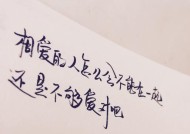 相爱的人怎么会不能在一起
还是不够爱对吧